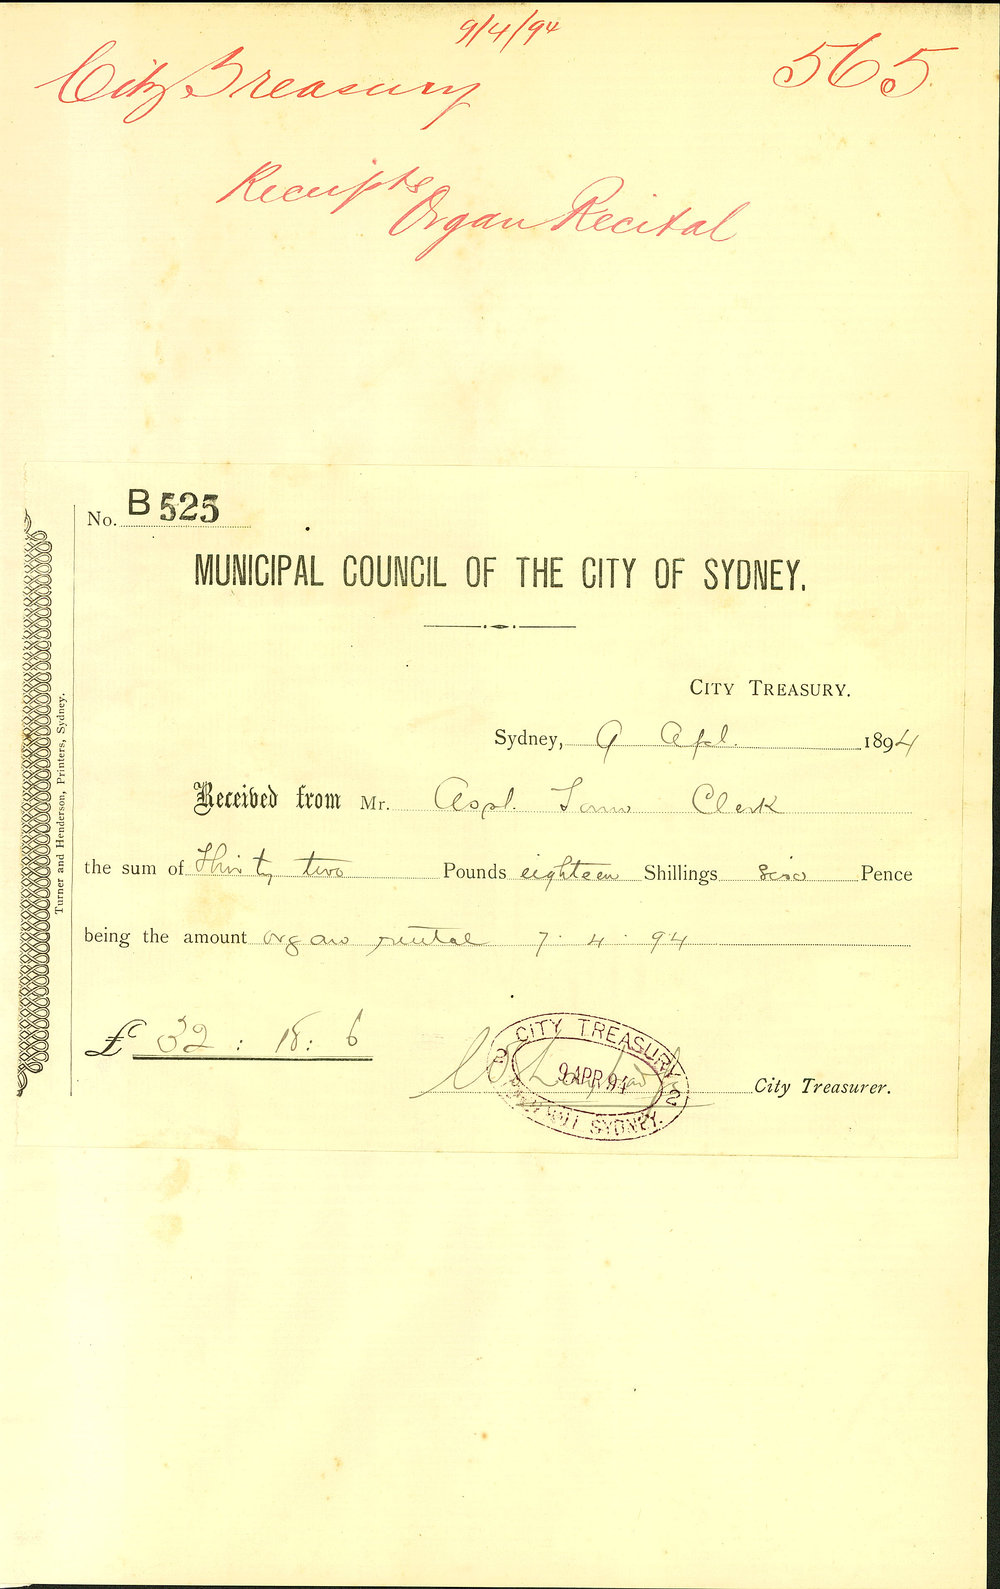 9/4/94
City Treasury
565
Receipts
Organ Recital
No. B 525
MUNICIPAL COUNCIL OF THE CITY OF SYDNEY.
CITY TREASURY.
Sydney, 9 Apl. 1894
Received from Mr. Asst. Town Clerk
the sum of Thirty two Pounds eighteen Shillings six Pence
being the amount organ recital 7. 4. 94
£ 32 : 18 : 6
CITY TREASURY
2 2
9 APR 94
TOWN HALL SYDNEY.
City Treasurer.
Turner and Henderson, Printers, Sydney.